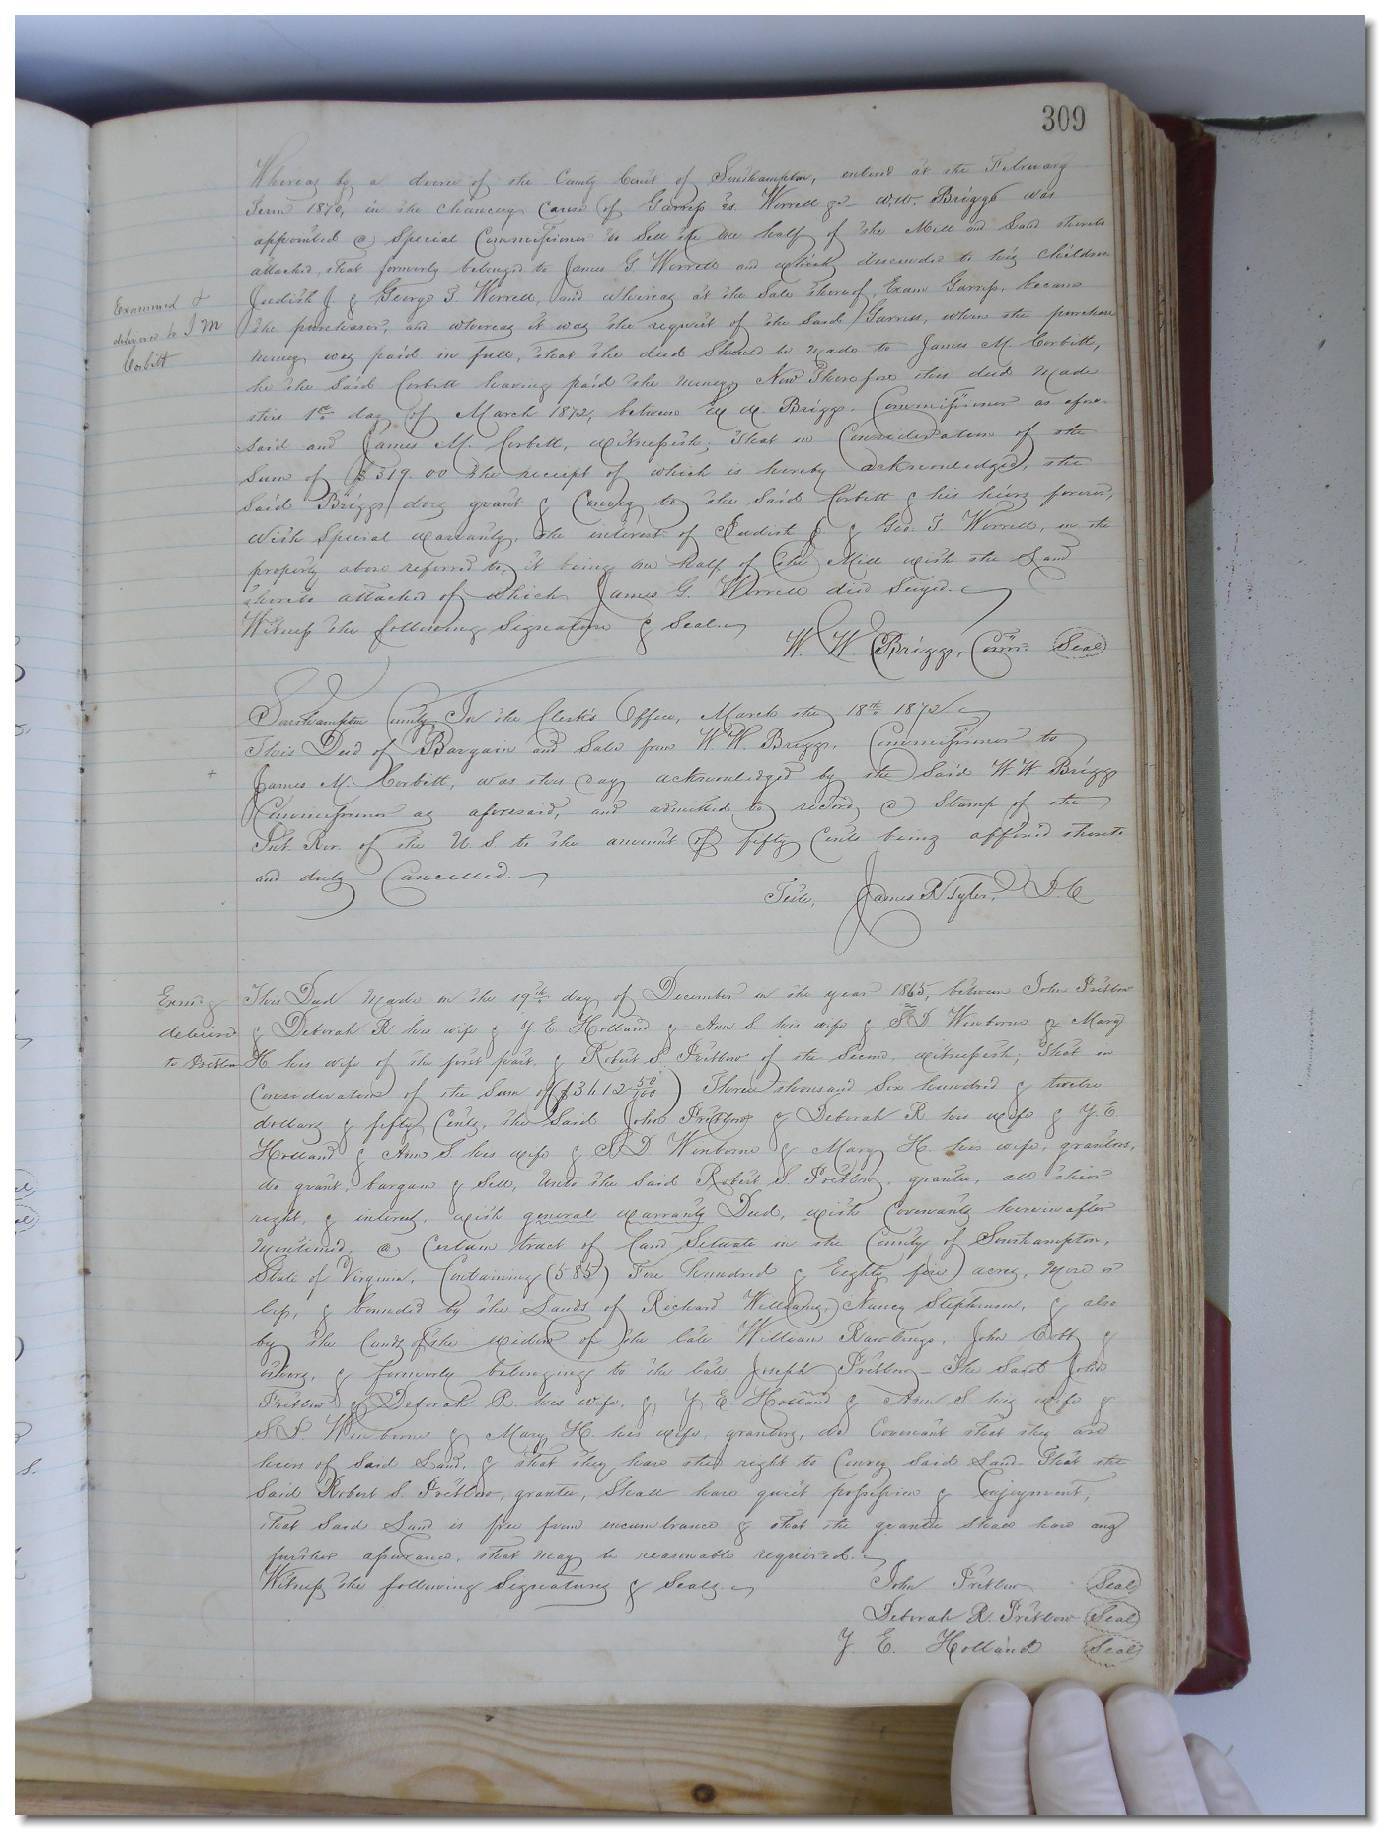 309
Whereas by a decree of the County Court of Southampton, entered at the February
Term 1872, in the chancery cause of Garriss vs. Worrell &c W.W. Briggs was
appointed a Special Commissioner to Sell the one half of the Mill and Land thereto
attached, that formerly belonged to James G Worrell and which descended to his children
Judith J & George T. Worrell, and whereas at the Sale thereof, Exum Garriss, became
the purchaser, and whereas it was the request of the Said Garriss, when the purchase
money was paid in full, that the deed Should be made to James M. Corbitt,
he the Said Corbitt having paid the money, Now Therefore this deed made
this 1st day of March 1872, between W. W. Briggs, Commissioner as afore-
said and James M. Corbitt, witnesseth, That in Consideration of the
Sum of $319.00 the receipt of which is hereby acknowledged, the
Said Briggs does grant & Convey to the Said Corbitt & his heirs forever,
with Special warranty, the interest of Judith J & Geo. T Worrell, in the
property above referred to, it being one half of the Mill with the Land
thereto attached of which James G. Worrell died Seized.
Witness the following Signature & Seal.
W. W. Briggs, Comr. Seal
Examined &
delivered to J M
Corbitt
Southampton County, In the Clerk's Office, March the 18th 1872
This Deed of Bargain and Sale from W.W. Briggs, Commissioner to
James M. Corbitt, was this day acknowledged by the Said W W Briggs
Commissioner as aforesaid, and admitted to record, a Stamp of the
Int. Rev. of the U.S. to the amount of fifty Cents being affixed thereto
and duly Cancelled.
Teste, James R Tyler, D.C
+
Exmd &
delivered
to Pretlow
This Deed made on the 19th day of December in the year 1865, between John Pretlow
& Deborah R his wife & Y E Holland & Ann S. his wife & S D Winborne & Mary
H his wife of the first part & Robert S. Pretlow of the Second, witnesseth; That in
Consideration of the Sum of ($3612 50/100) Three thousand Six hundred & twelve
dollars & fifty Cents, the Said John Pretlow & Deborah R his wife & Y.E.
Holland & Ann S. his wife & S D Winborne & Mary H. his wife, grantors,
do grant, bargain & Sell, Unto the Said Robert S. Pretlow, grantee, all their
right, & interest, with general warranty Deed, with Covenants hereinafter
mentioned, a Certain tract of land Situate in the County of Southampton,
State of Virginia, Containing (585) Five hundred & Eighty five acres, more or
less, & bounded by the Lands of Richard Williams, Nancy Stephenson, & also
by the lands of the widow of the late William Rawlings, John Cobb &
others, & formerly belonging to the late Joseph Pretlow - The Said John
Pretlow & Deborah R. his wife, & Y E Holland & Ann S his wife &
S D. Winborne & Mary H. his wife, grantors, do Covenant that they are
heirs of Said Land, & that they have the right to Convey Said Land. That the
Said Robert S. Pretlow, grantee, Shall have quiet possession & enjoyment,
that Said Land is free from encumbrance & that the grantee Shall have any
further assurance, that may be reasonable required.
Witness the following Signatures & Seals.
John Pretlow Seal
Deborah R. Pretlow Seal
Y. E. Holland Seal